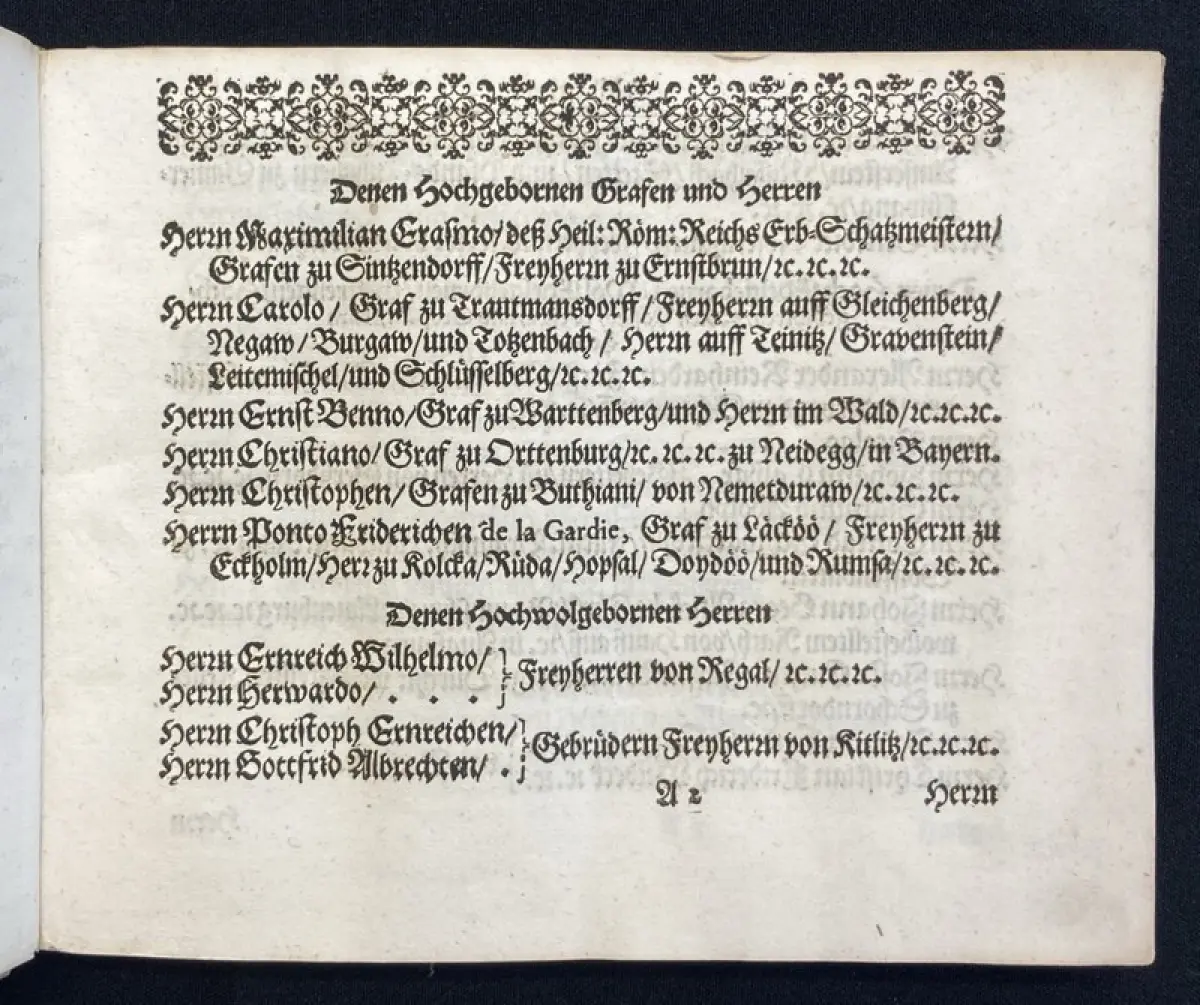 Denen Hochgebornen Grafen und Herren
Herrn Maximilian Erasmo/ deß Heil: Röm: Reichs Erb-Schatzmeistern/
Grafen zu Sintzendorff/Freyherrn zu Ernstbrun/ꝛc. ꝛc. ꝛc.
Herrn Carolo / Graf zu Trautmansdorff / Freyherrn auff Gleichenberg/
Negaw / Burgaw/und Totzenbach / Herrn auff Teinitz/ Gravenstein/
Leitemischel/und Schlüsselberg/ꝛc. ꝛc. ꝛc.
Herrn Ernst Benno/Graf zu Warttenberg/und Herrn im Wald/ꝛc.ꝛc.ꝛc.
Herrn Christiano/ Graf zu Orttenburg/ꝛc. ꝛc. ꝛc. zu Neidegg/in Bayern.
Herrn Christophen/ Grafen zu Buthiani/ von Nemetduraw/ꝛc. ꝛc. ꝛc.
Herrn Ponto Friderichen de la Gardie, Graf zu Läcköö / Freyherrn zu
Eckholm/Herr zu Kolcka/Rüda/Hopsal/ Doydöö/und Rumsa/ꝛc. ꝛc. ꝛc.
Denen Hochwolgebornen Herren
Herrn Ernreich Wilhelmo/
Herrn Herwardo/ . . .
} Freyherren von Regal/ ꝛc. ꝛc. ꝛc.
Herrn Christoph Ernreichen/
Herrn Gottfrid Albrechten/ .
} Gebrüdern Freyherrn von Kitlitz/ꝛc.ꝛc.ꝛc.
A 2 Herrn